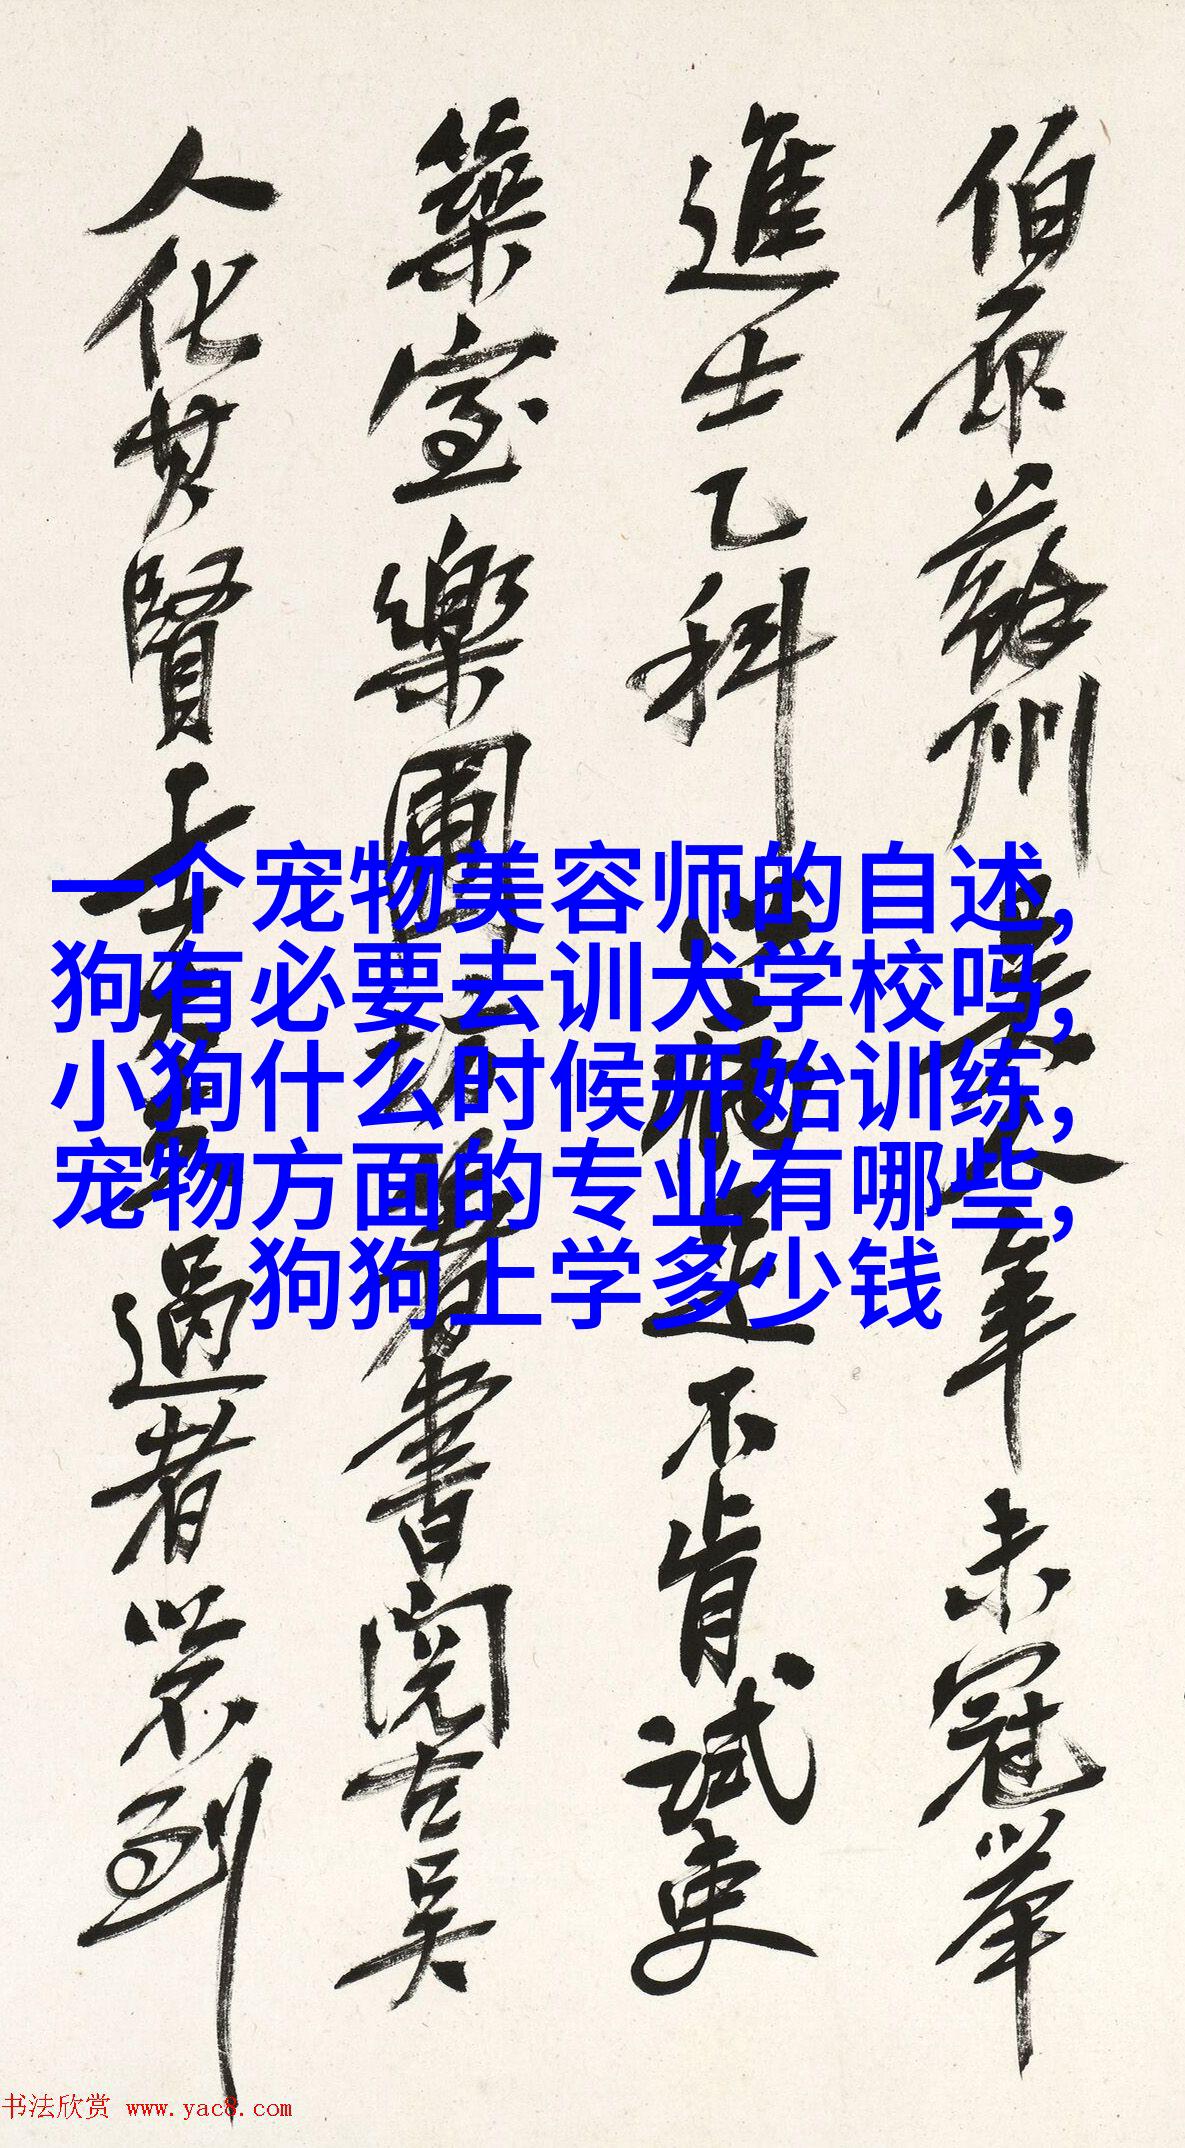 伯原蘇州長文人年未冠舉
進士乙科以病足不肯試吏
築室樂圃坊著書閱古吳
人化其賢士大夫過者以不到
一个宠物美容师的自述,
狗有必要去训犬学校吗,
小狗什么时候开始训练,
宠物方面的专业有哪些,
狗狗上学多少钱
书法欣赏 www.yac8.com